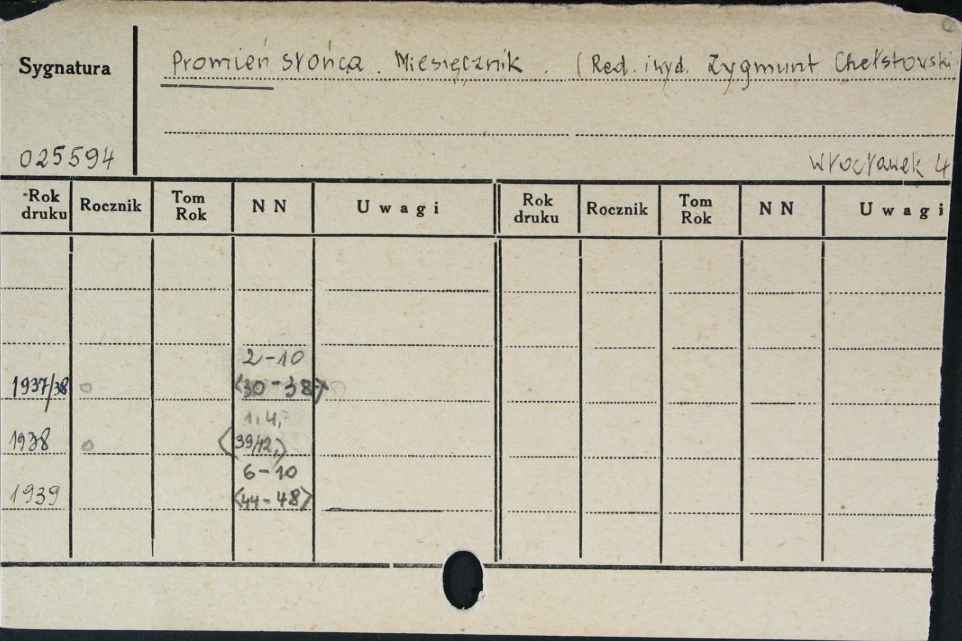 Sygnatura
Promień słońca. Miesięcznik. (Red. i wyd. Zygmunt Chełstowski
025594
Włocławek 4
Rok druku Rocznik Tom Rok NN Uwagi Rok druku Rocznik Tom Rok NN Uwagi
2-10
1937/38 (30-38)
1,4,
1938 (39/42,)
6-10
1939 (44-48)